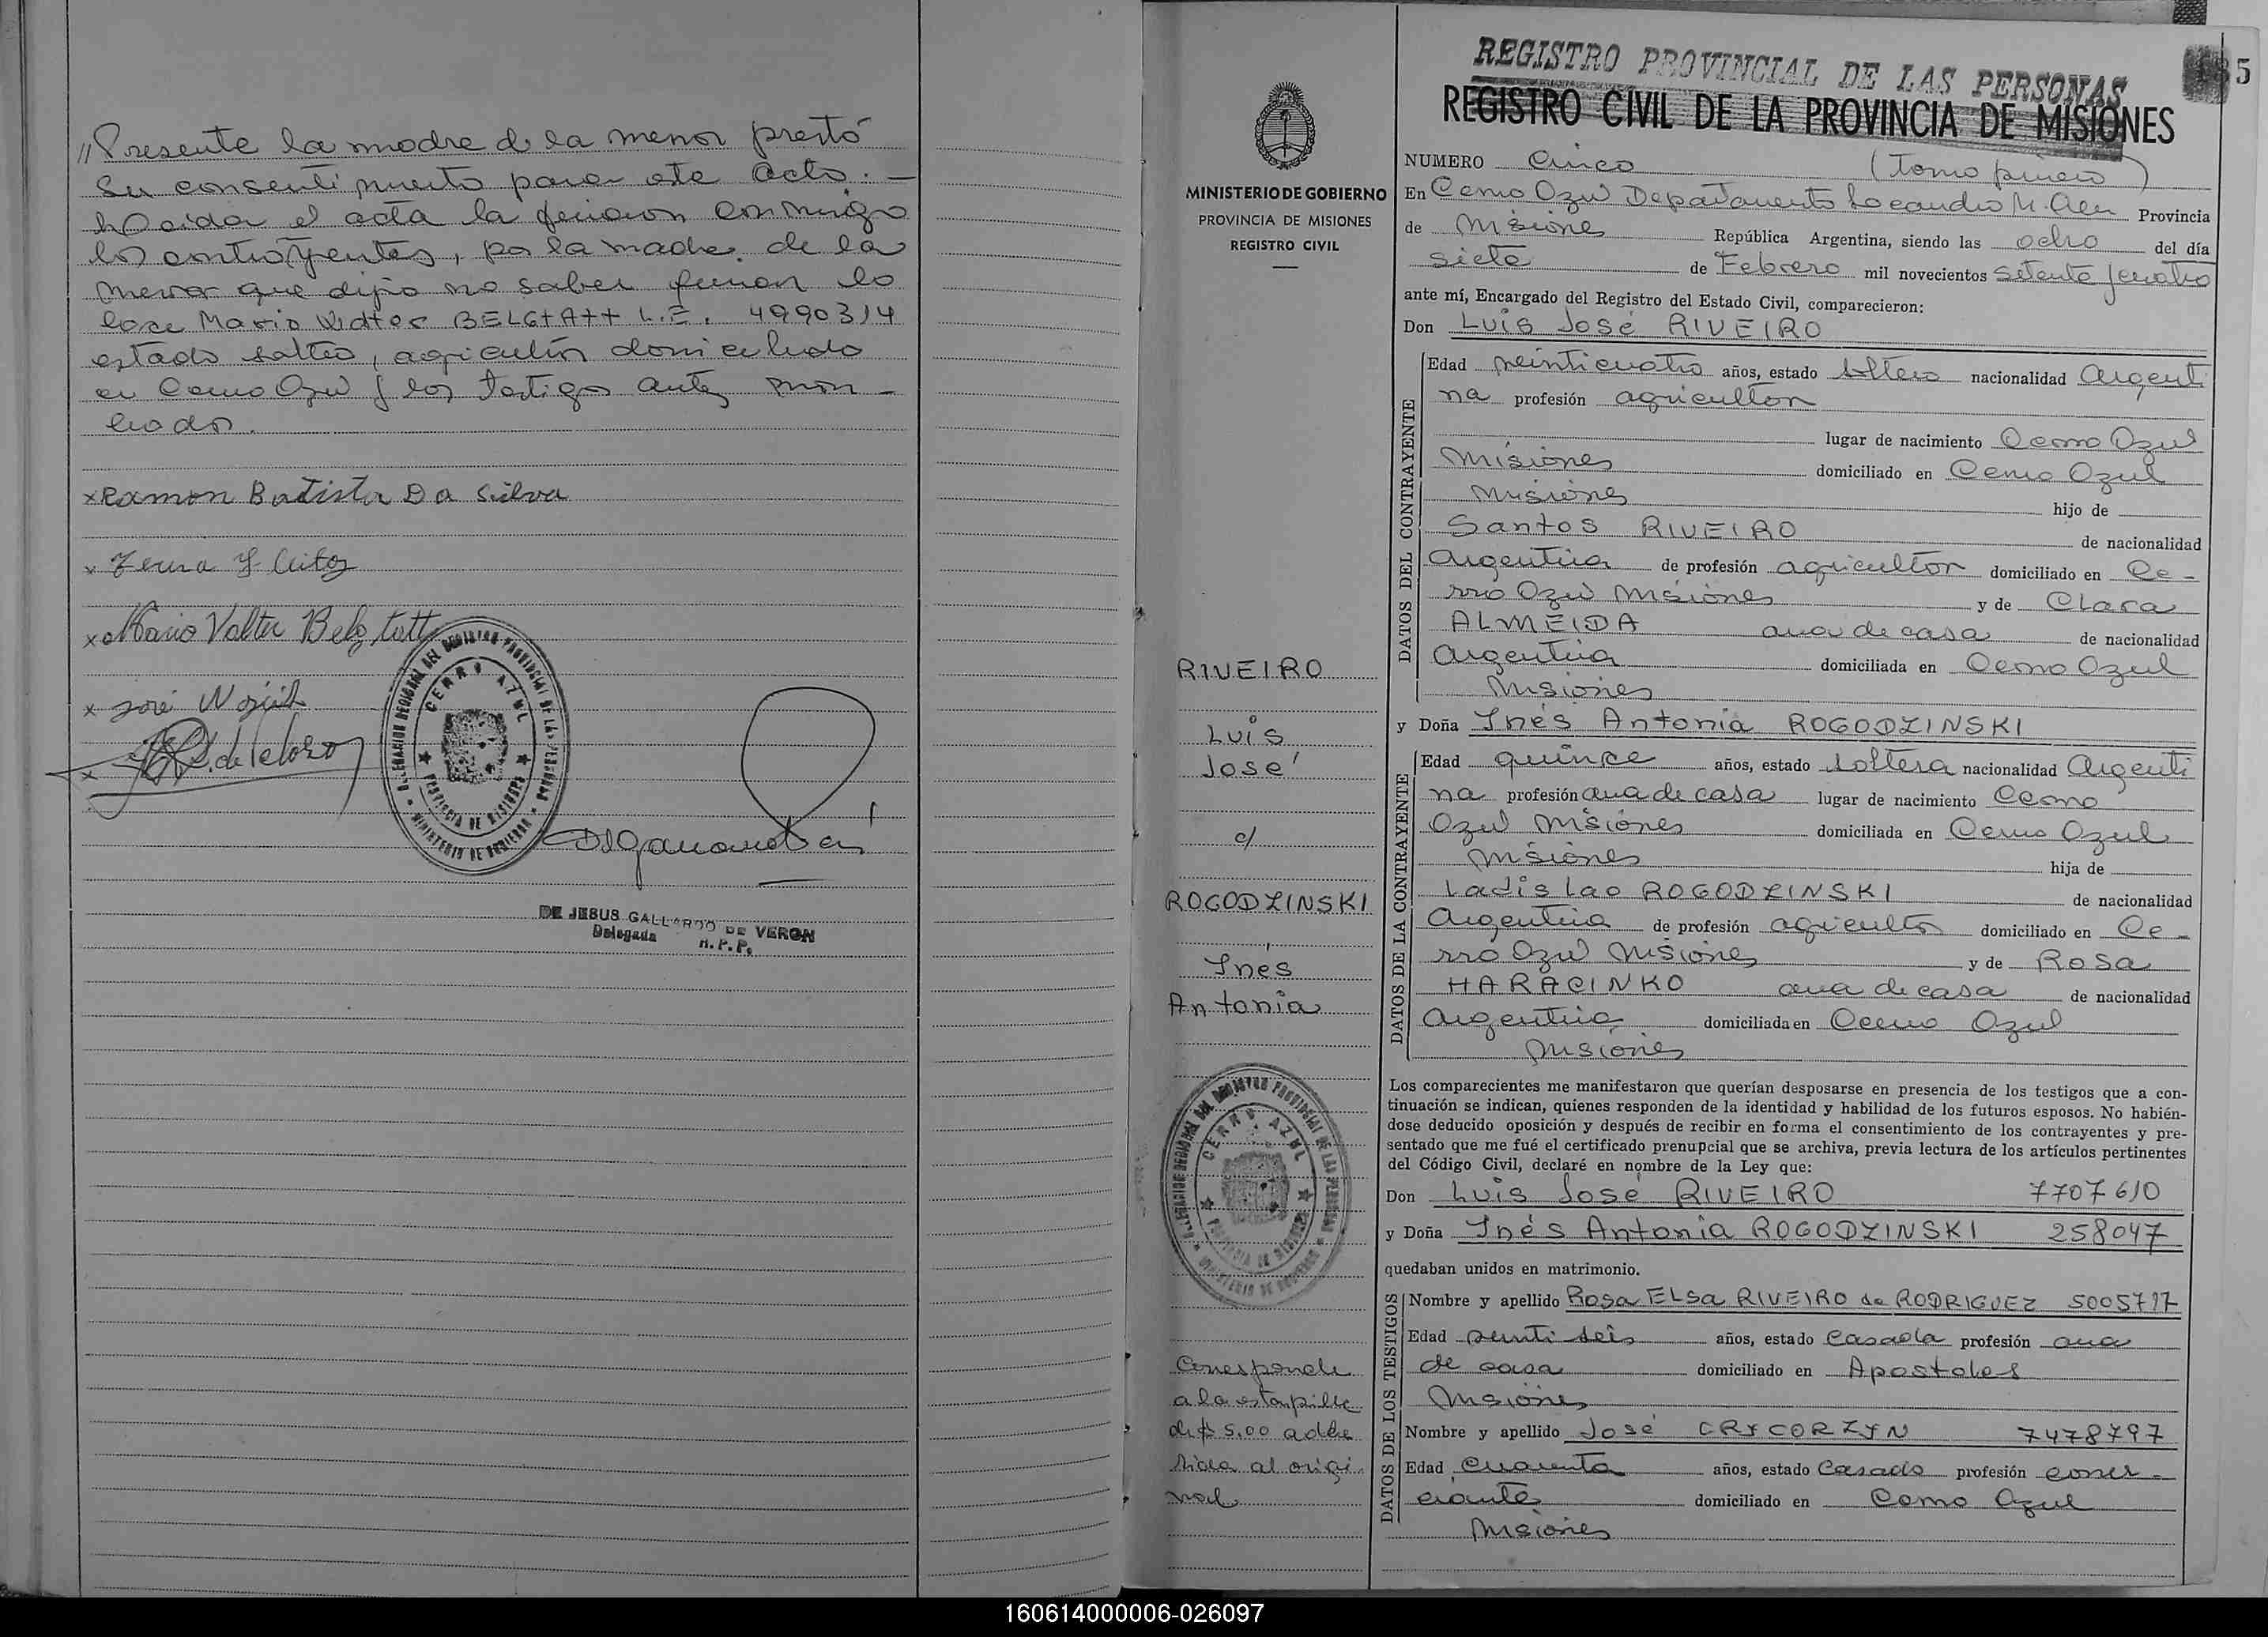 //Presente la madre de la menor prestó
su consentimiento para este acto. —
Leida el acta la firmaron conmigo
los contrayentes, por la madre de la
menor que dijo no saber firmar lo
hace Mario Walter BELGTATT L.E. 4990314
estado soltero, agricultor domiciliado
en Cerro Azul y los testigos antes nom-
brados.
x Ramon Batista Da Silva
x
x Mario Valter Belgtatt
x José
x de Veloso
DELEGACION REGIONAL DEL REGISTRO PROVINCIAL DE LAS PERSONAS
CERRO AZUL
PROVINCIA DE MISIONES
MINISTERIO DE GOBIERNO
DE JESUS GALLARDO DE VERON
Delegada R.P.P.
MINISTERIO DE GOBIERNO
PROVINCIA DE MISIONES
REGISTRO CIVIL
RIVEIRO
Luis
José
c/
ROGODZINSKI
Inés
Antonia
DELEGACION REGIONAL DEL REGISTRO PROVINCIAL DE LAS PERSONAS
CERRO AZUL
PROVINCIA DE MISIONES
MINISTERIO DE GOBIERNO
Corresponde
a la estampilla
de $ 5,00 adhe
rida al origi
nal
REGISTRO PROVINCIAL DE LAS PERSONAS
5
REGISTRO CIVIL DE LA PROVINCIA DE MISIONES
NUMERO Cinco (Tomo primero)
En Cerro Azul Departamento Leandro N. Alem Provincia
de Misiones República Argentina, siendo las ocho del día
siete de Febrero mil novecientos setenta y cuatro
ante mí, Encargado del Registro del Estado Civil, comparecieron:
Don Luis José RIVEIRO
DATOS DEL CONTRAYENTE
Edad veinticuatro años, estado soltero nacionalidad Argenti
na profesión agricultor
lugar de nacimiento Cerro Azul
Misiones domiciliado en Cerro Azul
Misiones hijo de
Santos RIVEIRO de nacionalidad
Argentina de profesión agricultor domiciliado en Ce-
rro Azul Misiones y de Clara
ALMEIDA ama de casa de nacionalidad
Argentina domiciliada en Cerro Azul
Misiones
y Doña Inés Antonia ROGODZINSKI
DATOS DE LA CONTRAYENTE
Edad quince años, estado soltera nacionalidad Argenti
na profesión ama de casa lugar de nacimiento Cerro
Azul Misiones domiciliada en Cerro Azul
Misiones hija de
Ladislao ROGODZINSKI de nacionalidad
Argentina de profesión agricultor domiciliado en Ce-
rro Azul Misiones y de Rosa
HARACINKO ama de casa de nacionalidad
Argentina domiciliada en Cerro Azul
Misiones
Los comparecientes me manifestaron que querían desposarse en presencia de los testigos que a con-
tinuación se indican, quienes responden de la identidad y habilidad de los futuros esposos. No habién-
dose deducido oposición y después de recibir en forma el consentimiento de los contrayentes y pre-
sentado que me fué el certificado prenupcial que se archiva, previa lectura de los artículos pertinentes
del Código Civil, declaré en nombre de la Ley que:
Don Luis José RIVEIRO 7707610
y Doña Inés Antonia ROGODZINSKI 258047
quedaban unidos en matrimonio.
DATOS DE LOS TESTIGOS
Nombre y apellido Rosa ELSA RIVEIRO de RODRIGUEZ 5005797
Edad veinti seis años, estado casada profesión ama
de casa domiciliado en Apostoles
Misiones
Nombre y apellido José CRYCORZYN 7478797
Edad Cuarenta años, estado Casado profesión comer-
ciante domiciliado en Cerro Azul
Misiones
160614000006-026097